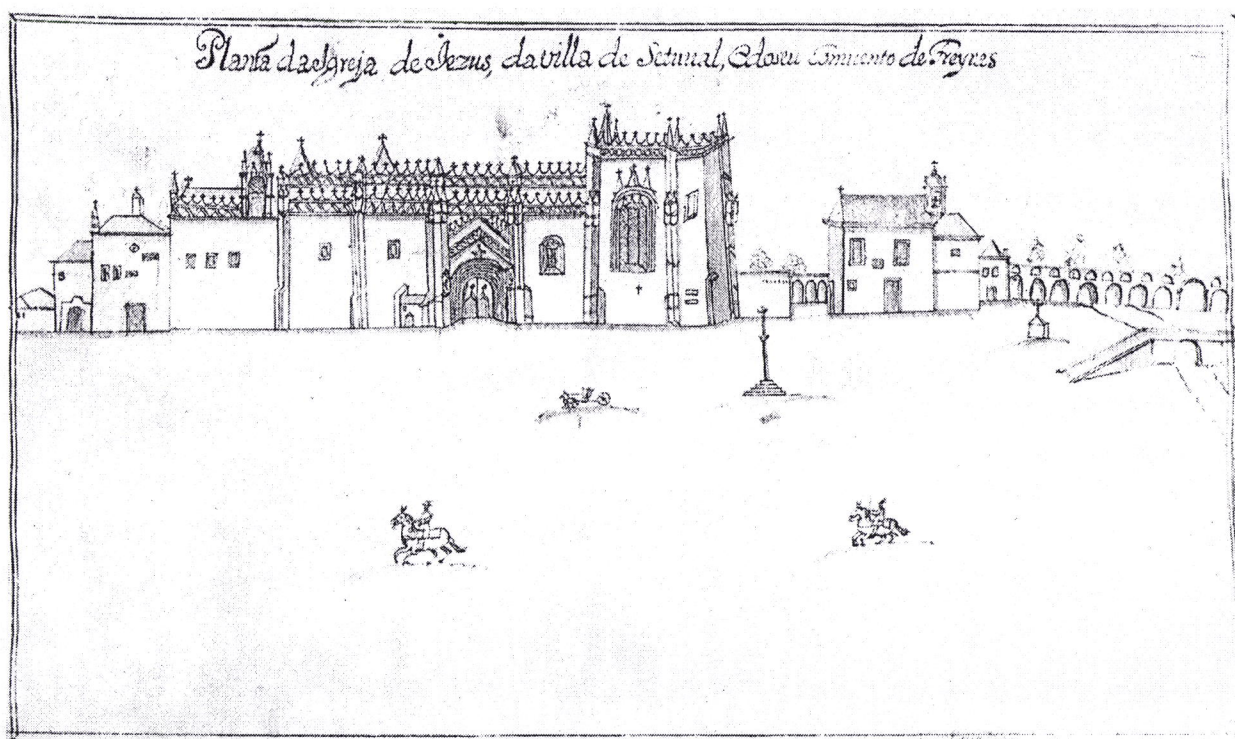 Planta da Igreja de Jezus, da villa de Setuual, e do seu Conuento de Freyras